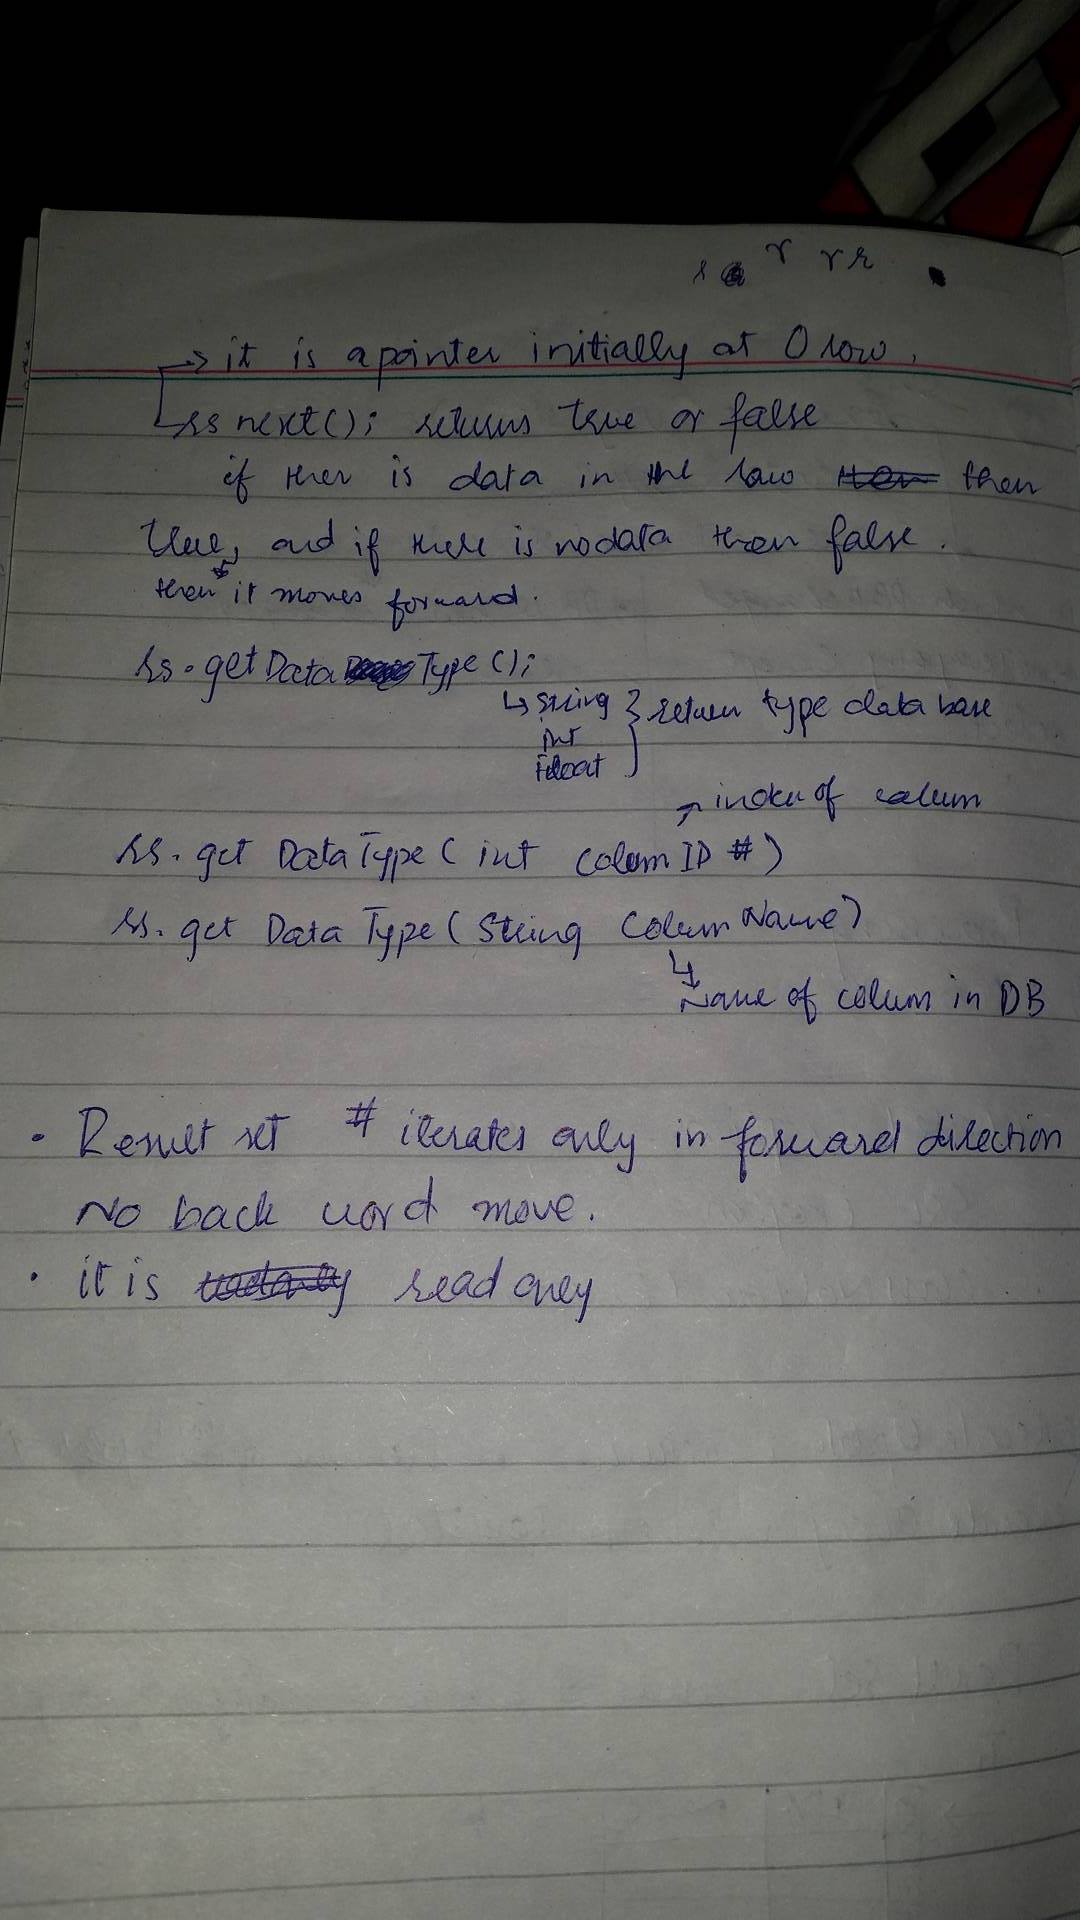 r rr
→ it is a pointer initially at 0 row.
rs next(); returns true or false
if ther is data in the row then
true, and if there is no data then false.
then it moves forward.
rs.getData Type();
↳ string } return type data base
int
float
→ index of colum
rs. get DataType ( int Colum ID # )
rs. get Data Type ( String Colum Name)
↳ Name of colum in DB
• Result set # iterates only in forward direction
No back word move.
• it is read only